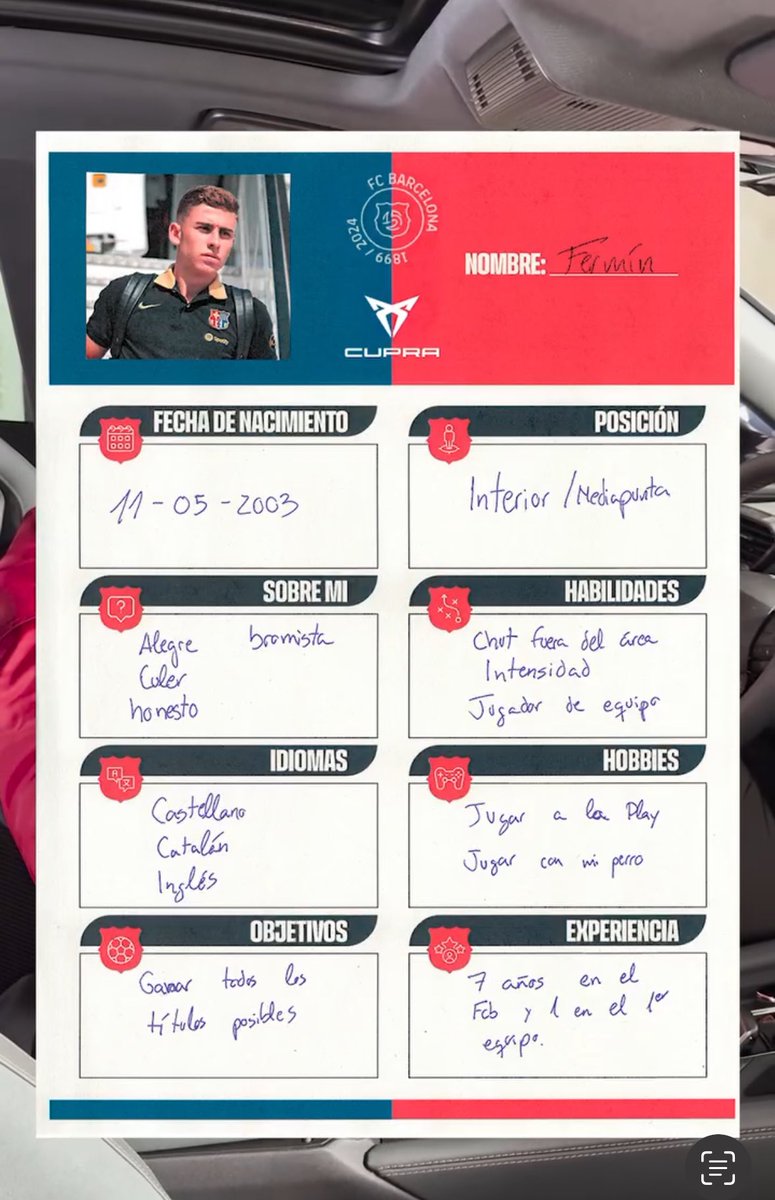 FC BARCELONA
1899 / 2024
NOMBRE: Fermín
CUPRA
FECHA DE NACIMIENTO
11-05-2003
POSICIÓN
Interior / Mediapunta
SOBRE MI
Alegre bromista
Culer
honesto
HABILIDADES
Chut fuera del área
Intensidad
Jugador de equipo
IDIOMAS
Castellano
Catalán
Inglés
HOBBIES
Jugar a la Play
Jugar con mi perro
OBJETIVOS
Ganar todos los
títulos posibles
EXPERIENCIA
7 años en el
Fcb y 1 en el 1er
equipo.